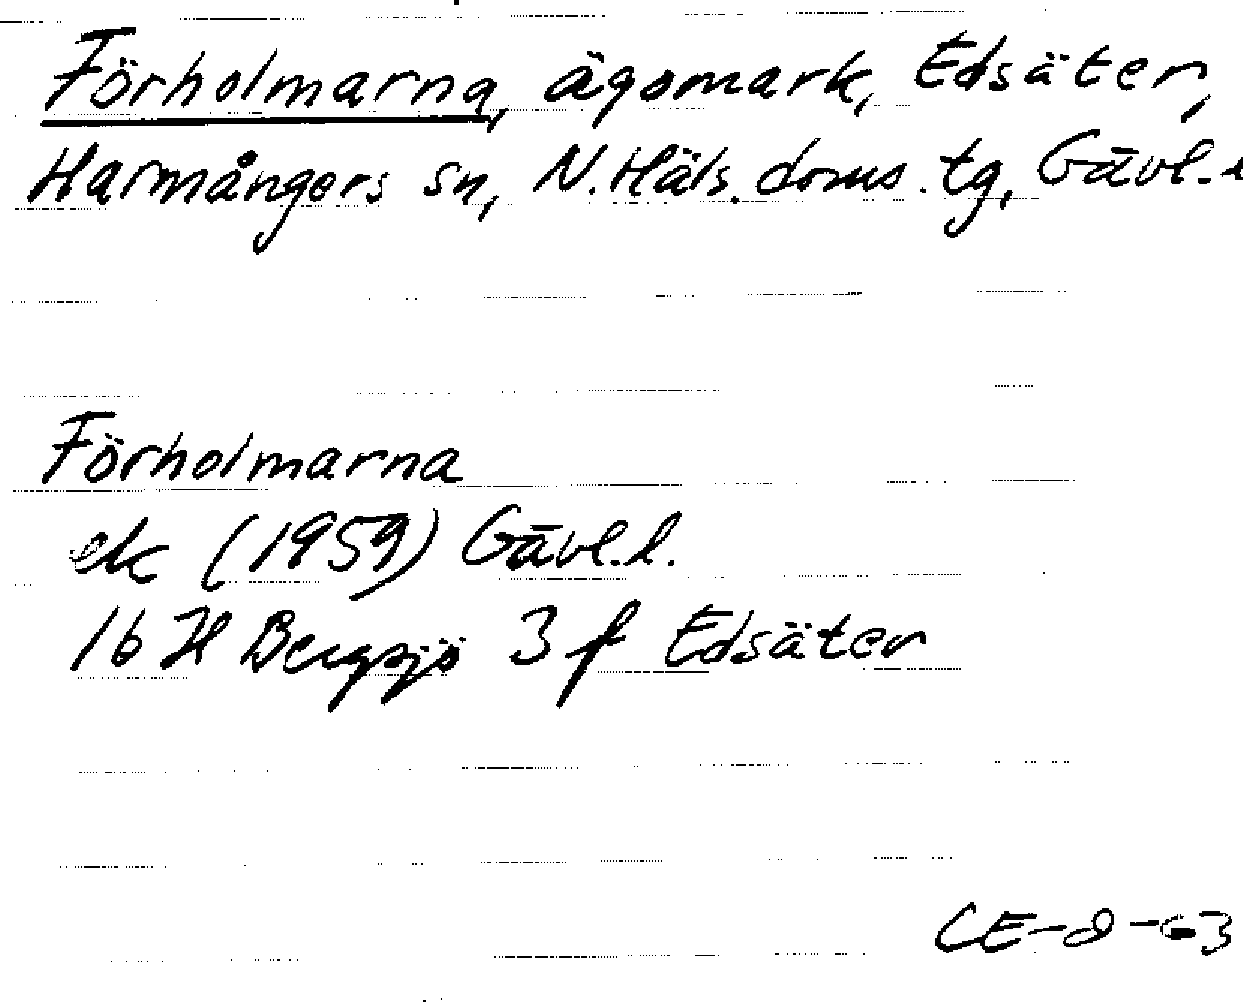 Förholmarna, ägomark, Edsäter,
Harmångers sn, N. Häls. doms. tg, Gävl. l
Förholmarna
ek (1959) Gävl. l.
16 H Bergsjö 3 f Edsäter
CE-8-63